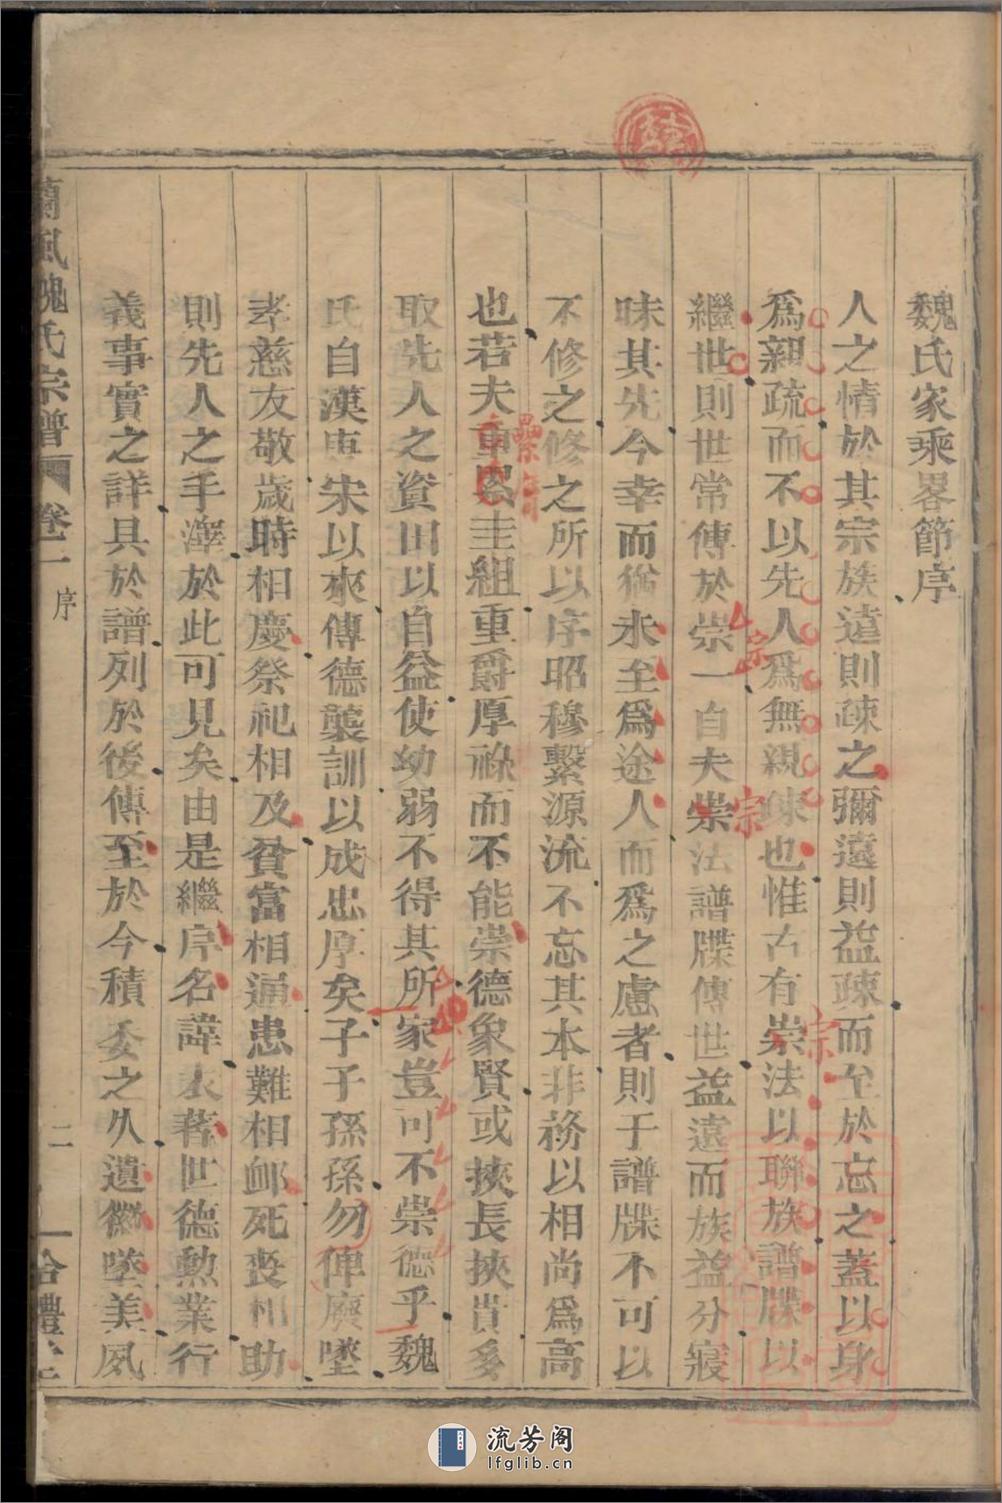 魏氏家乘畧節序
人之情於其宗族遠則疎之彌遠則益疎而至於忘之蓋以身
爲親疏而不以先人爲無親疎也惟古有崇法以聯族譜牒以
繼世則世常傳於崇一自夫崇法譜牒傳世益遠而族益分寢
昧其先今幸而猶未至爲途人而爲之慮者則于譜牒不可以
不修之修之所以序昭穆繫源流不忘其本非務以相尚爲高
也若夫重圭組重爵厚祿而不能崇德象賢或挾長挾貴多
取先人之資田以自益使幼弱不得其所家豈可不崇德乎魏
氏自漢唐宋以來傳德襲訓以成忠厚矣子子孫孫勿俾廢墜
孝慈友敬歲時相慶祭祀相及貧富相通患難相卹死喪相助
則先人之手澤於此可見矣由是繼序名諱表著世德勲業行
義事實之詳具於譜列於後傳至於今積委之久遺徽墜美夙
蘭風魏氏宗譜
卷二
序
二
宗
宗
宗
流芳阁
lfglib.cn